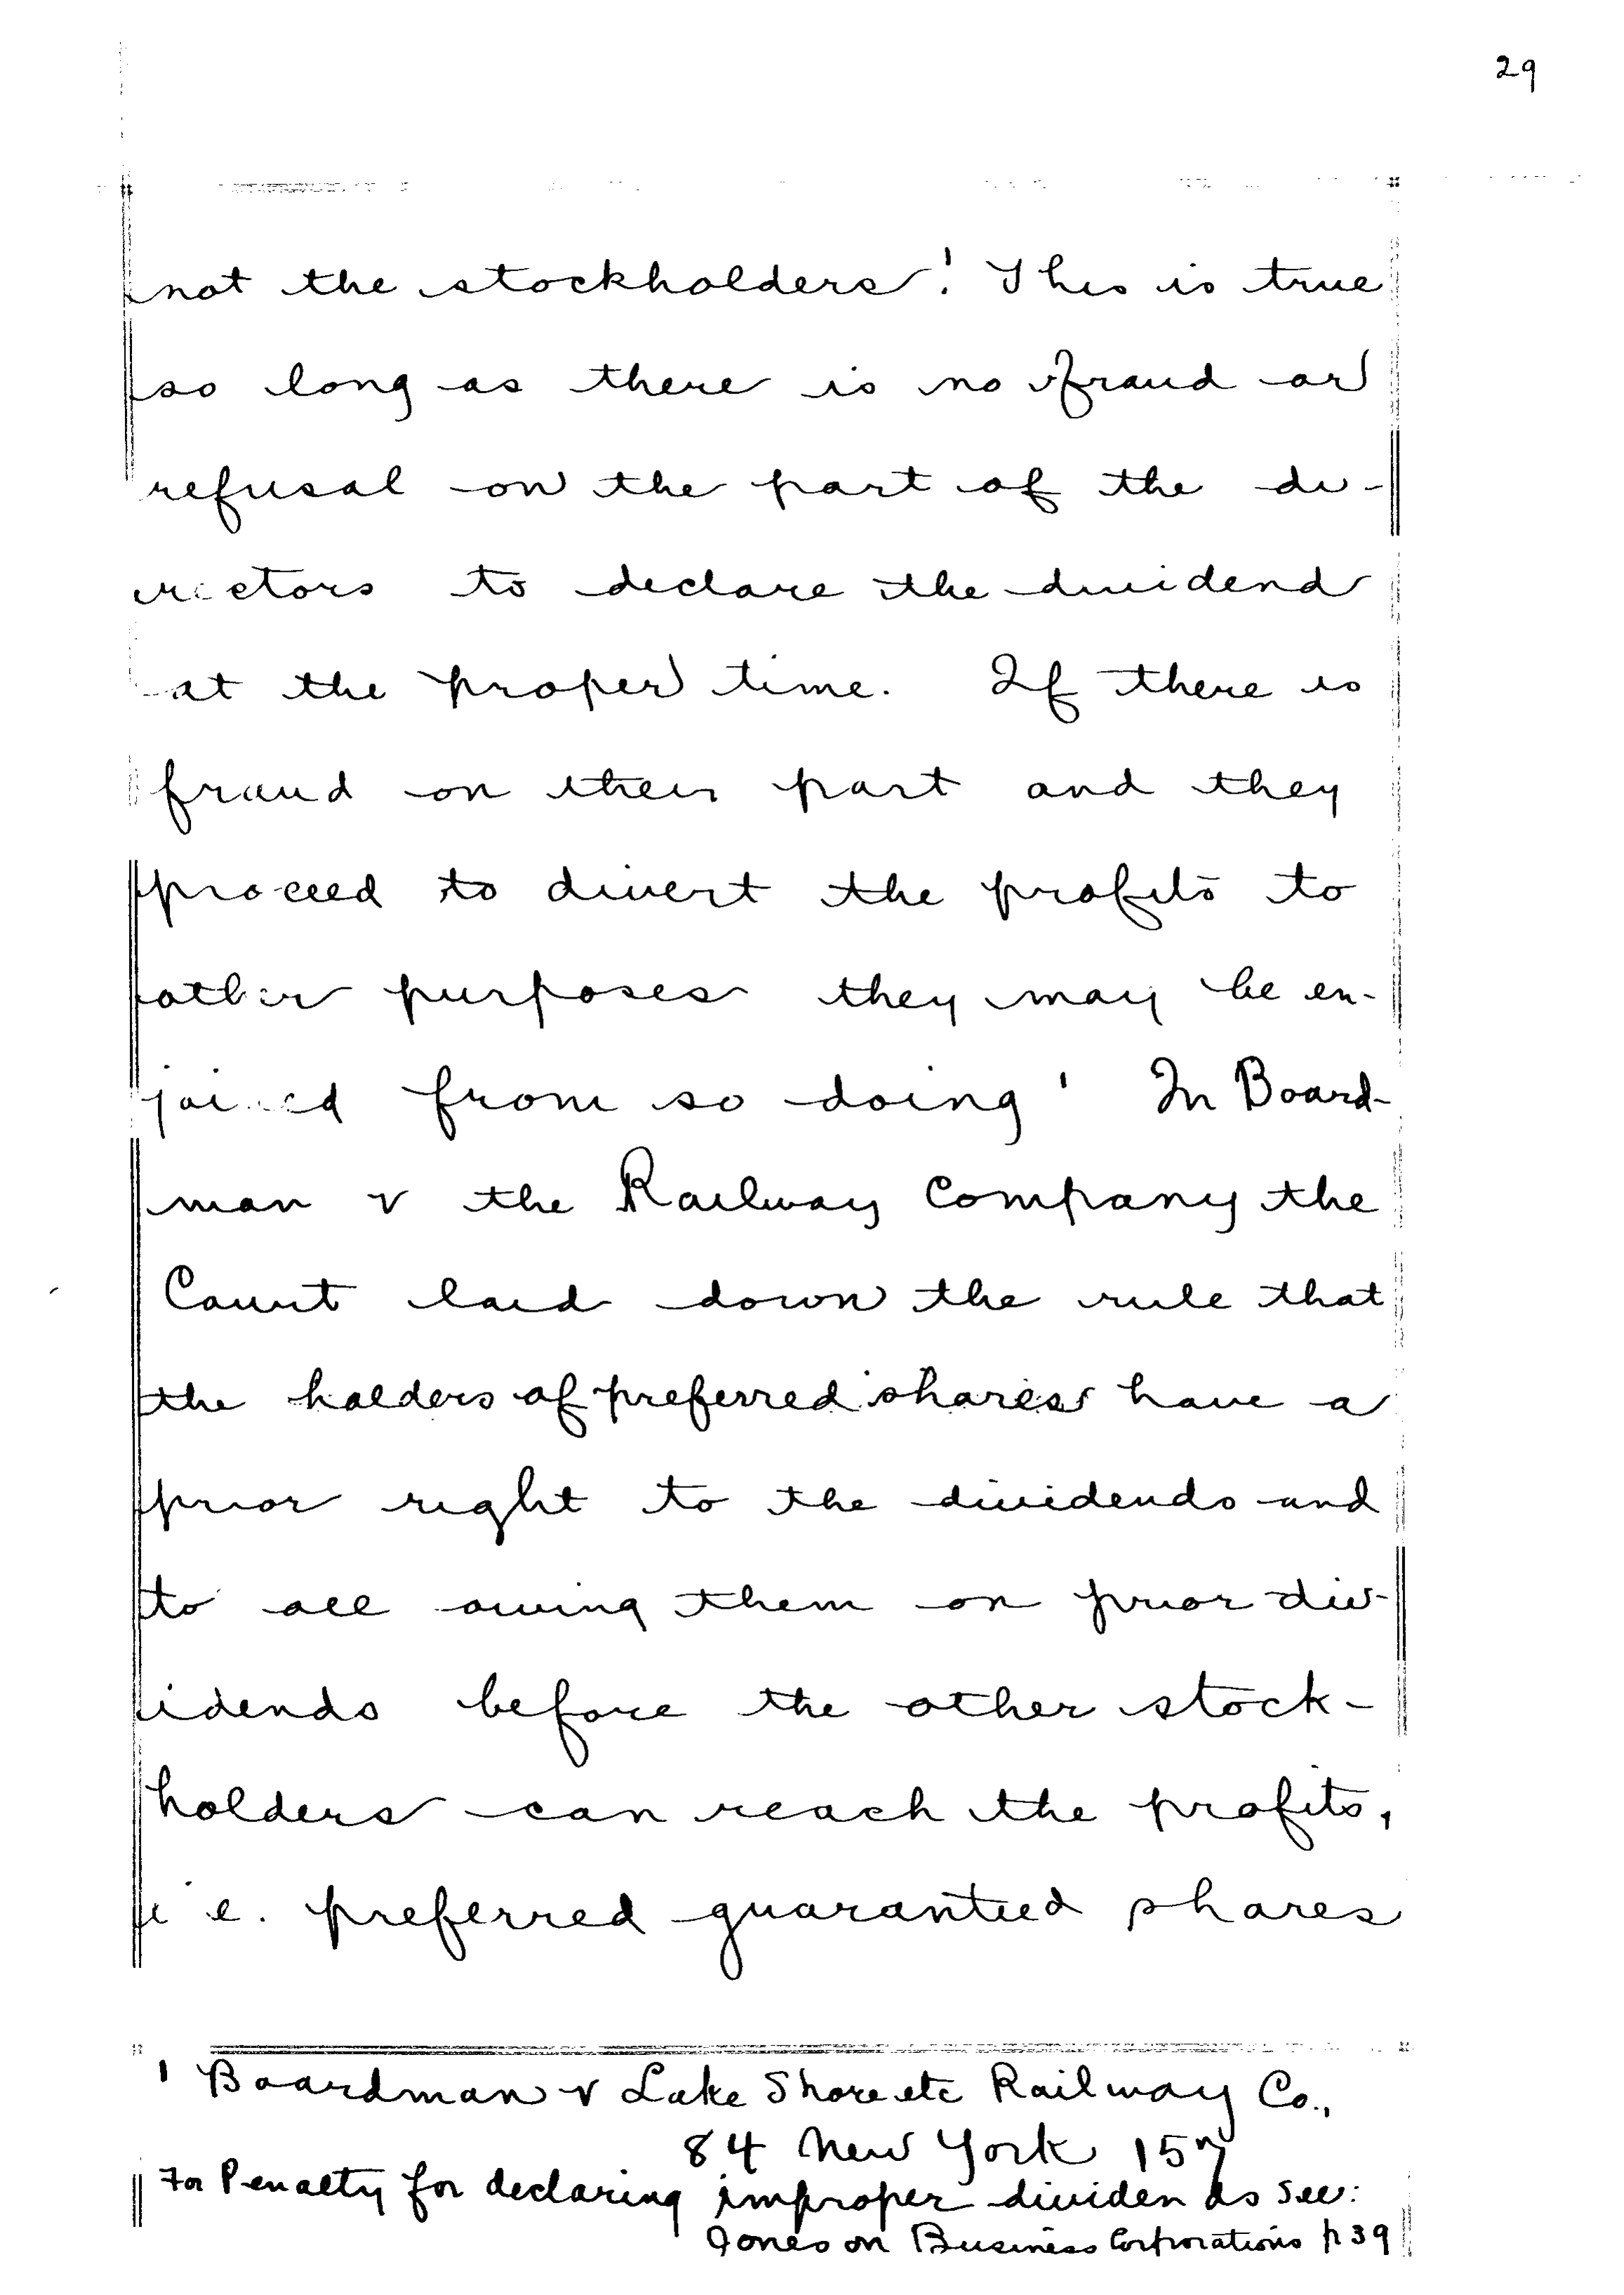 29
not the stockholders.¹ This is true
so long as there is no fraud or
refusal on the part of the di-
rectors to declare the dividend
at the proper time. If there is
fraud on their part and they
proceed to divert the profits to
other purposes they may be en-
joined from so doing ¹ In Board-
man v the Railway Company the
Court laid down the rule that
the holders of preferred shares have a
prior right to the dividends and
to all owing them on prior div-
idends before the other stock-
holders can reach the profits,
i e. preferred guaranteed shares
¹ Boardman v Lake Shore etc Railway Co.,
84 New York 157
For Penalty for declaring improper dividends see:
Jones on Business Corporations p 39